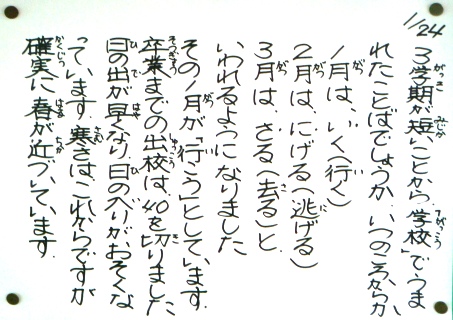 1/24
3学期が短いことから、学校でうま
れたことばでしょうか、いつのころからか、
1月は、いく(行く)
2月は、にげる(逃げる)
3月は、さる(去る)と
いわれるようになりました
その1月が「行こう」としています。
卒業までの出校は、40を切りました
日の出が早くなり、日の入りがおそくな
っています。寒さは、これからですが
確実に春が近づいています。